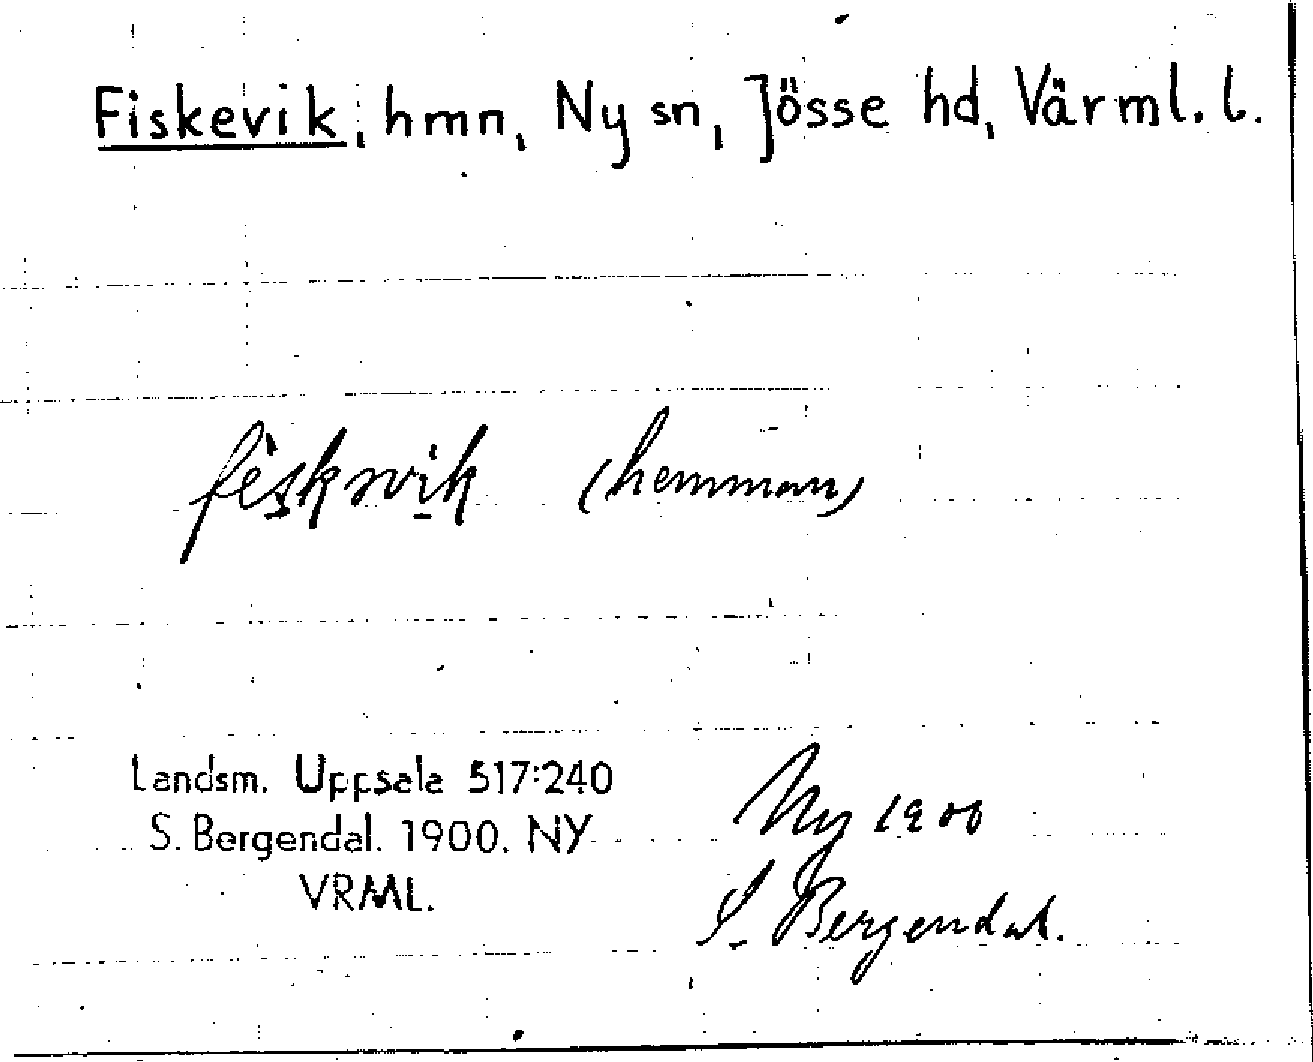 Fiskevik, hmn, Ny sn, Jösse hd, Värml. l.
fèskəvik (hemman)
Landsm. Uppsala 517:240
S. Bergendal. 1900. NY
VRML.
Ny 1900
S. Bergendal.